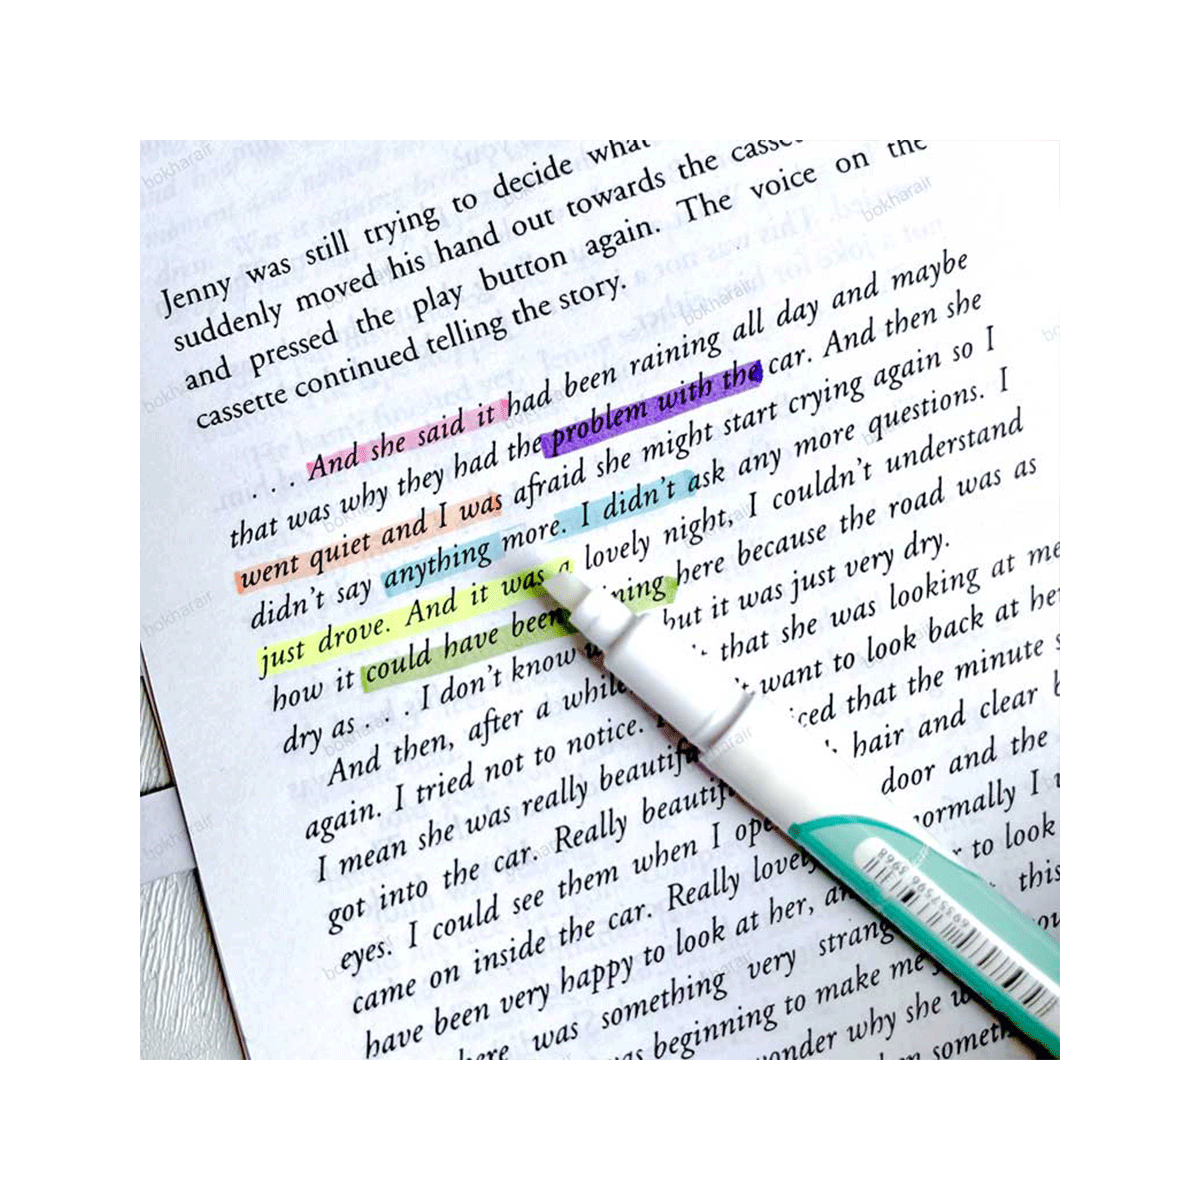 Jenny was still trying to decide what
suddenly moved his hand out towards the
and pressed the play button again. The voice on the
cassette continued telling the story.
. . . . And she said it had been raining all day and maybe
that was why they had the problem with the car. And then she
went quiet and I was afraid she might start crying again so I
didn't say anything more. I didn't ask any more questions. I
just drove. And it was a lovely night, I couldn't understand
how it could have been raining here because the road was as
dry as . . . I don't know but it was just very dry.
And then, after a while that she was looking at me
again. I tried not to notice. want to look back at
I mean she was really beautiful that the minute
got into the car. Really hair and clear
eyes. I could see them when I door and the
came on inside the car. Really normally I
have been very happy to look at her, to look
was something very this
beginning to make me
wonder why she
bokharair